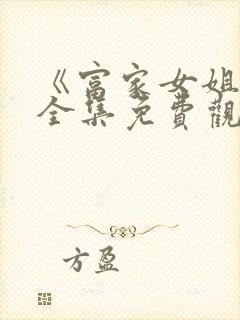 《富家女姐
全集免費觀
方盈